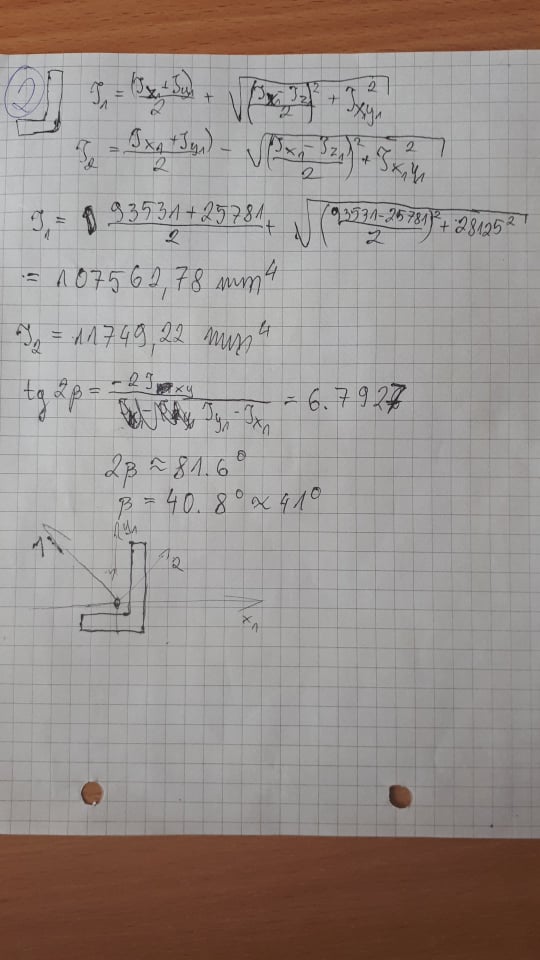 2
J₁ = (Jx₁ + Jy₁)/2 + √((Jx₁ - Jz₁)/2)² + Jx₁y₁²
J₂ = (Jx₁ + Jy₁)/2 - √((Jx₁ - Jz₁)/2)² + Jx₁y₁²
J₁ = (93531 + 25781)/2 + √((93531 - 25781)/2)² + 28125²
= 107562,78 mm⁴
J₂ = 11749,22 mm⁴
tg 2β = -2Jxy/(Jy₁ - Jx₁) = 6.7927
2β ≈ 81.6°
β = 40.8° ≈ 41°
y₁
1
2
x₁